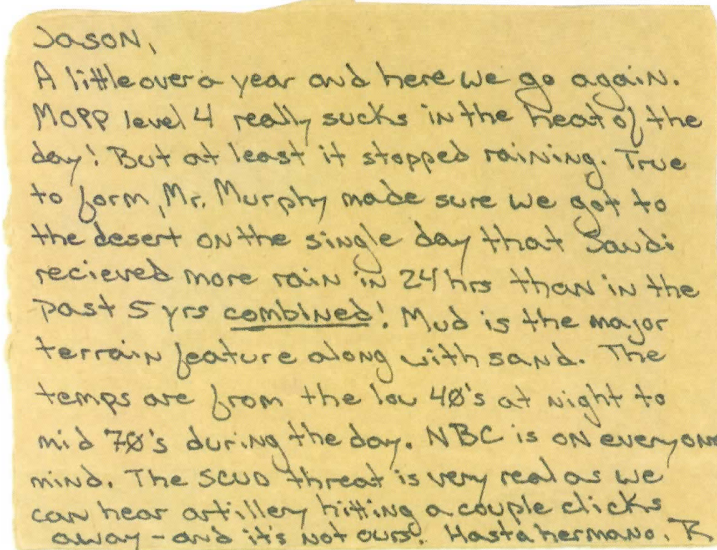 Jason,
A little over a year and here we go again.
MOPP level 4 really sucks in the heat of the
day! But at least it stopped raining. True
to form, Mr. Murphy made sure we got to
the desert on the single day that Saudi
recieved more rain in 24 hrs than in the
past 5 yrs combined! Mud is the major
terrain feature along with sand. The
temps are from the low 40's at night to
mid 70's during the day. NBC is on everyone
mind. The SCUD threat is very real as we
can hear artillery hitting a couple clicks
away - and it's not ours! Hasta hermano. R